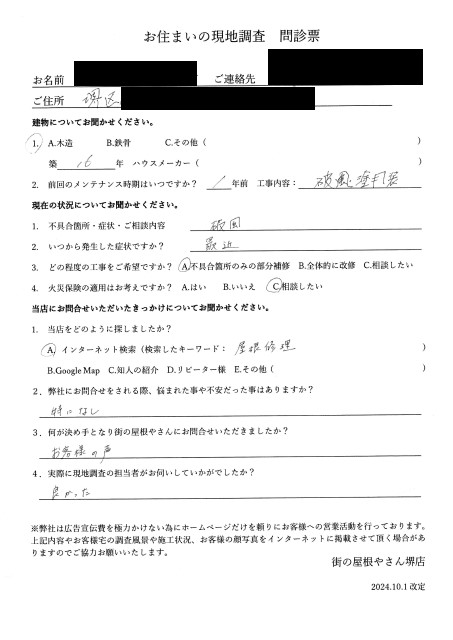 お住まいの現地調査 問診票
お名前 ご連絡先
ご住所 堺区
建物についてお聞かせください。
1. A.木造 B.鉄骨 C.その他（ ）
築 16 年 ハウスメーカー（ ）
2. 前回のメンテナンス時期はいつですか？ 1 年前 工事内容： 破風塗装
現在の状況についてお聞かせください。
1. 不具合箇所・症状・ご相談内容 破風
2. いつから発生した症状ですか？ 最近
3. どの程度の工事をご希望ですか？ A.不具合箇所のみの部分補修 B.全体的に改修 C.相談したい
4. 火災保険の適用はお考えですか？ A.はい B.いいえ C.相談したい
当店にお問合せいただいたきっかけについてお聞かせください。
1. 当店をどのように探しましたか？
A. インターネット検索（検索したキーワード： 屋根修理 ）
B.Google Map C.知人の紹介 D.リピーター様 E.その他（ ）
2．弊社にお問合せをされる際、悩まれた事や不安だった事はありますか？
特になし
3．何が決め手となり街の屋根やさんにお問合せいただきましたか？
お客様の声
4．実際に現地調査の担当者がお伺いしていかがでしたか？
良かった
※弊社は広告宣伝費を極力かけない為にホームページだけを頼りにお客様への営業活動を行っております。
上記内容やお客様宅の調査風景や施工状況、お客様の顔写真をインターネットに掲載させて頂く場合があ
りますのでご協力お願いいたします。
街の屋根やさん堺店
2024.10.1 改定